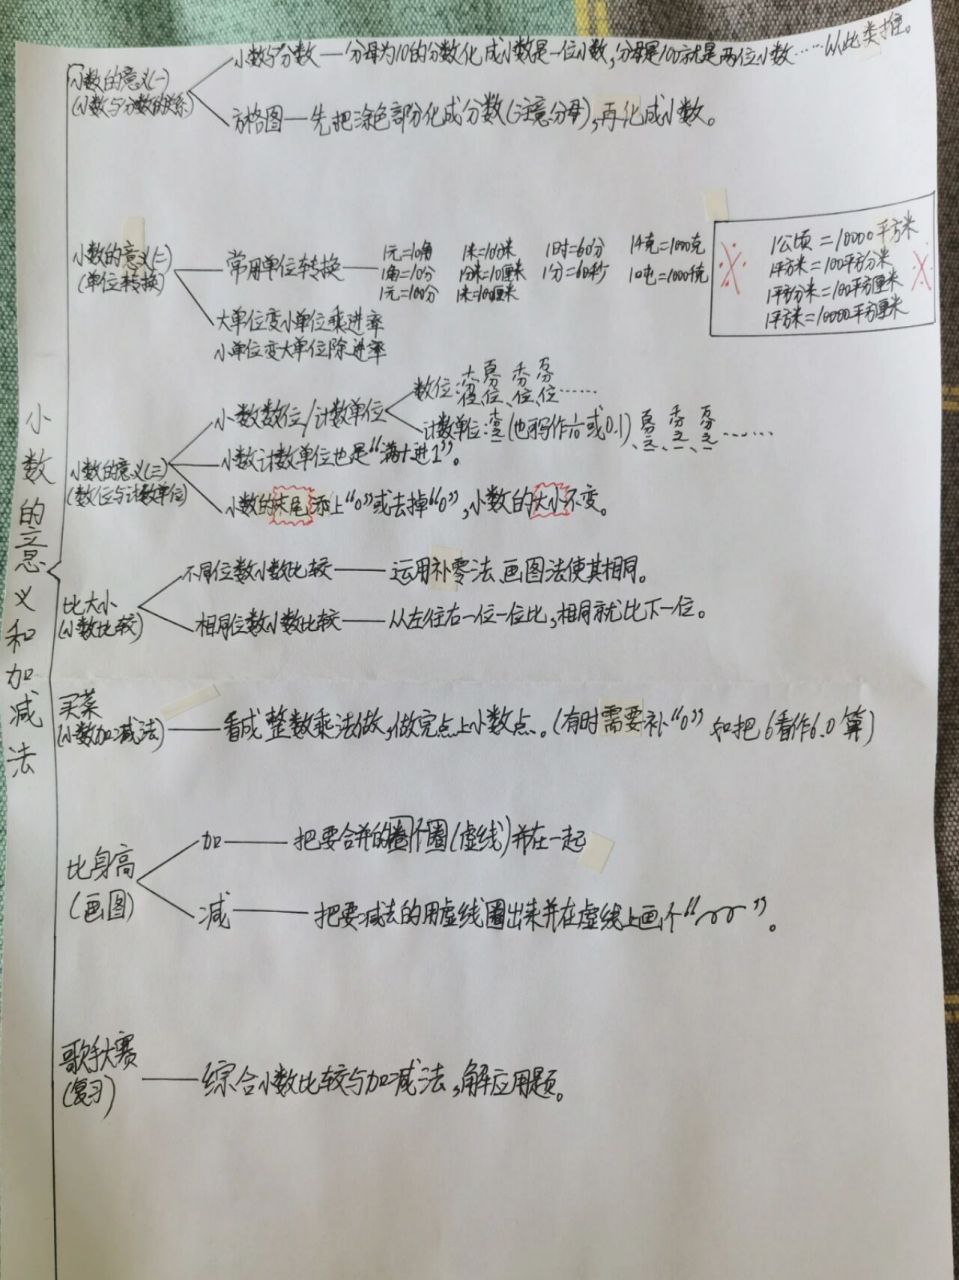 小数的意义和加减法
小数的意义(一)
(小数与分数的关系)
小数与分数——分母为10的分数化成小数是一位小数,分母是100就是两位小数……以此类推。
方格图——先把涂色部分化成分数(注意分母),再化成小数。
小数的意义(二)
(单位转换)
常用单位转换
1元=10角 1米=10分米 1时=60分 1千克=1000克
1角=10分 1分米=10厘米 1分=60秒 1吨=1000千克
1元=100分 1米=100厘米
1公顷=10000平方米
1平方米=100平方分米
1平方分米=100平方厘米
1平方米=10000平方厘米
大单位变小单位乘进率
小单位变大单位除进率
小数的意义(三)
(数位与计数单位)
小数数位/计数单位
数位:十分位、百分位、千分位、万分位……
计数单位:十分之一(也可写作1/10或0.1)、百分之一、千分之一、万分之一……
小数计数单位也是“满十进1”。
小数的末尾添上“0”或去掉“0”,小数的大小不变。
比大小
(小数比较)
不同位数小数比较——运用补零法、画图法使其相同。
相同位数小数比较——从左往右一位一位比,相同就比下一位。
买菜
(小数加减法)
看成整数乘法做,做完点上小数点。(有时需要补“0” 如把6看作6.0算)
比身高
(画图)
加——把要合并的圈个圈(虚线)并在一起
减——把要减去的用虚线圈出来并在虚线上画个“ ”。
歌手大赛
(复习)
综合小数比较与加减法,解应用题。